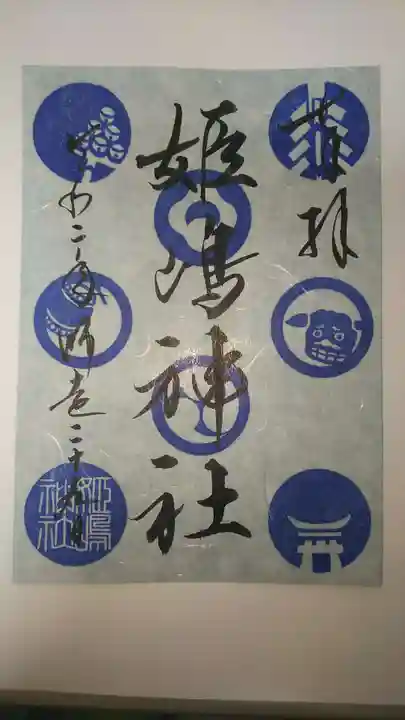 奉拝
姫嶋神社
令和二年師走二十五日
姫嶋神社